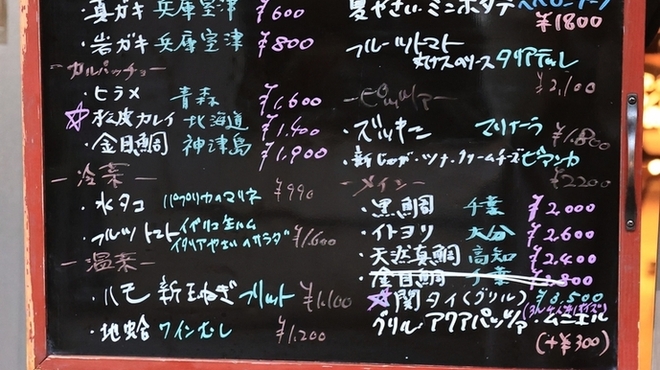 ・真ガキ 兵庫室津 ¥600
・岩ガキ 兵庫室津 ¥800
ーカルパッチョー
・ヒラメ 青森 ¥1,600
☆松皮カレイ 北海道 ¥1,400
・金目鯛 神津島 ¥1,900
ー冷菜ー
・水タコ パプリカのマリネ ¥990
・フルーツトマト イベリコ生ハム
イタリアやさいのサラダ ¥1,600
ー温菜ー
・ハモ 新玉ねぎ フリット ¥1,100
・地蛤 ワインむし ¥1,200
夏やさい ミニホタテ
¥1800
フルーツトマト
ソース タリアテッレ
¥2,100
ーピッツァー
・ズッキーニ マリナーラ ¥1,800
・新じゃが・ツナ・クリームチーズ ビアンカ
¥2200
ーメインー
・黒鯛 千葉 ¥2,000
・イトヨリ 大分 ¥2,600
・天然真鯛 高知 ¥2,400
・金目鯛 千葉 ¥2,800
☆関タイ(グリル) ¥3,500
グリル アクアパッツァ・ムニエル
(+¥300)